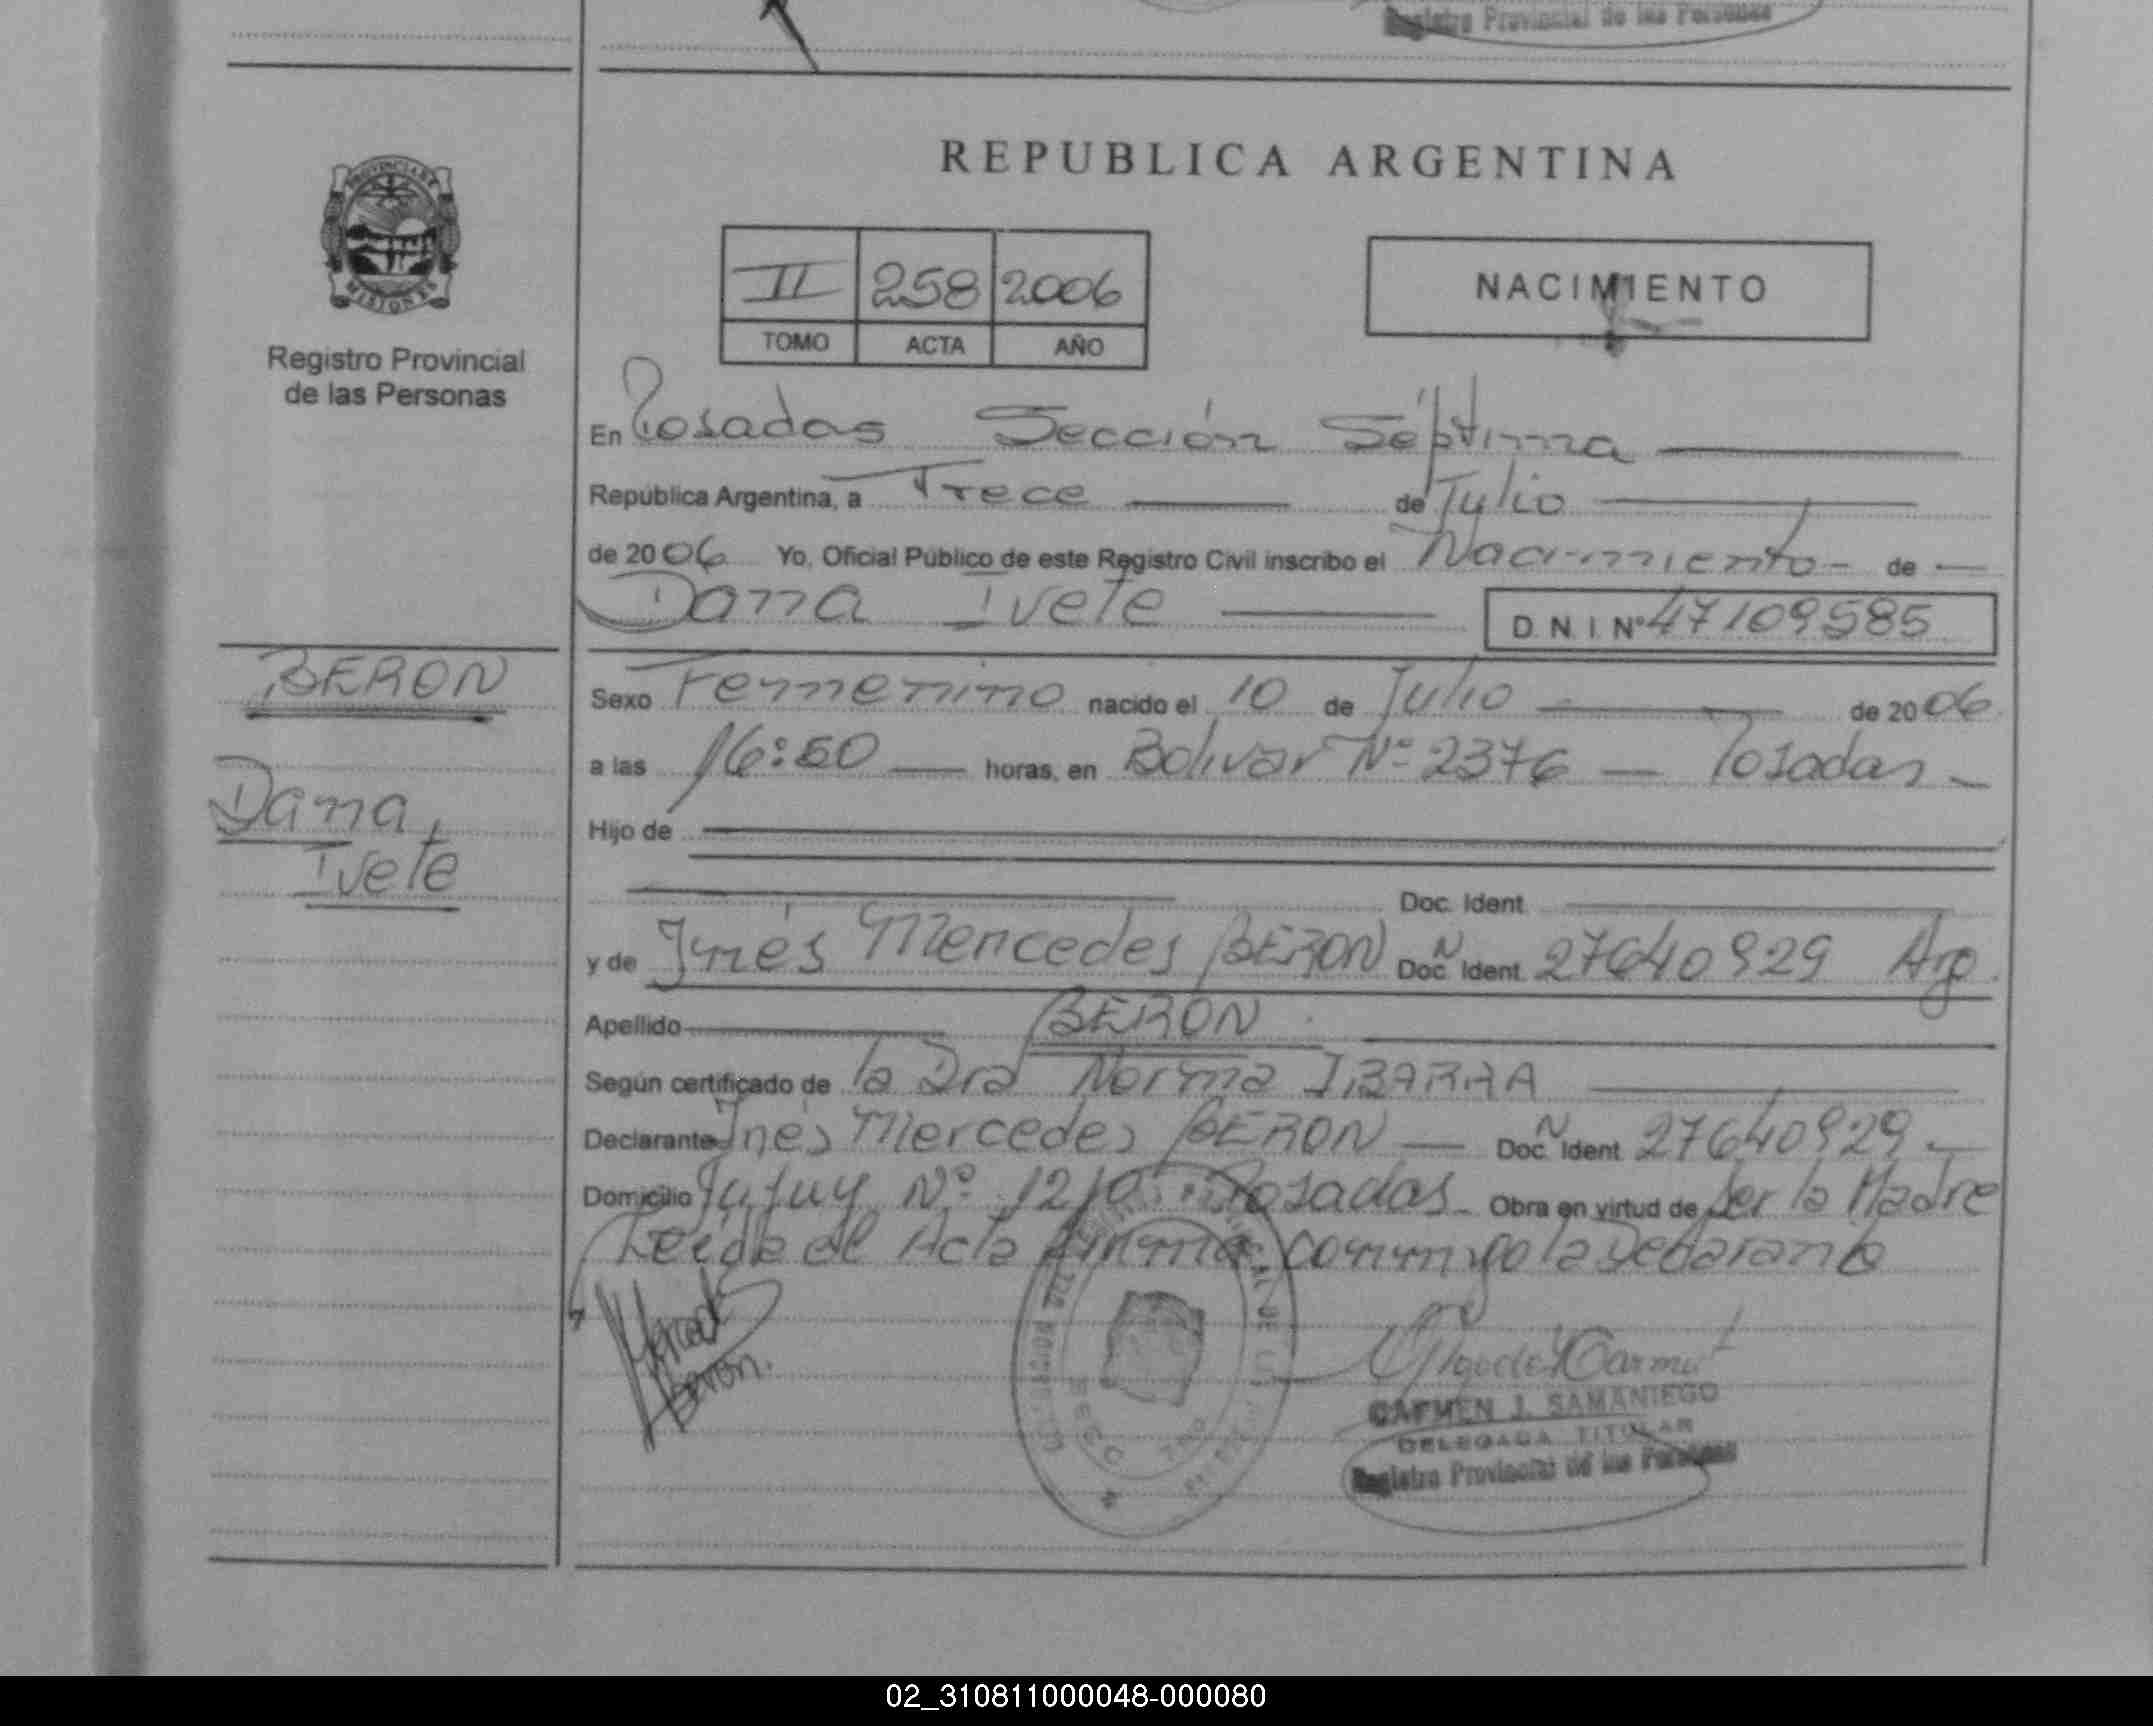 Registro Provincial de las Personas
PROVINCIA DE
MISIONES
Registro Provincial
de las Personas
REPUBLICA ARGENTINA
II 258 2006
TOMO ACTA AÑO
NACIMIENTO
En Posadas Sección Séptima
República Argentina, a Trece de Julio
de 2006 Yo, Oficial Público de este Registro Civil inscribo el Nacimiento de
Danna Ivete D.N.I. Nº 47109585
BERON
Danna,
Ivete
Sexo Femenino nacido el 10 de Julio de 2006
a las 16:50 horas, en Bolivar Nº 2376 Posadas
Hijo de
Doc. Ident.
y de Inés Mercedes BERON Doc. N Ident. 27640929 Arg.
Apellido BERON
Según certificado de la Dra Norma IBARRA
Declarante Inés Mercedes BERON Doc. N Ident. 27640929
Domicilio Jujuy Nº 1210 Posadas Obra en virtud de Ser la Madre
Leida el Acta Firma conmigo la Declarante
Mercedes
Beron.
CARMEN J. SAMANIEGO
DELEGADA TITULAR
Registro Provincial de las Personas
02_310811000048-000080